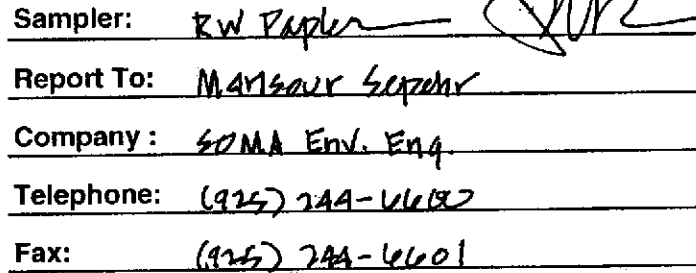 Sampler: RW Papler
Report To: Mansour Sepehr
Company : SOMA Env. Eng.
Telephone: (925) 244-6600
Fax: (925) 244-6601